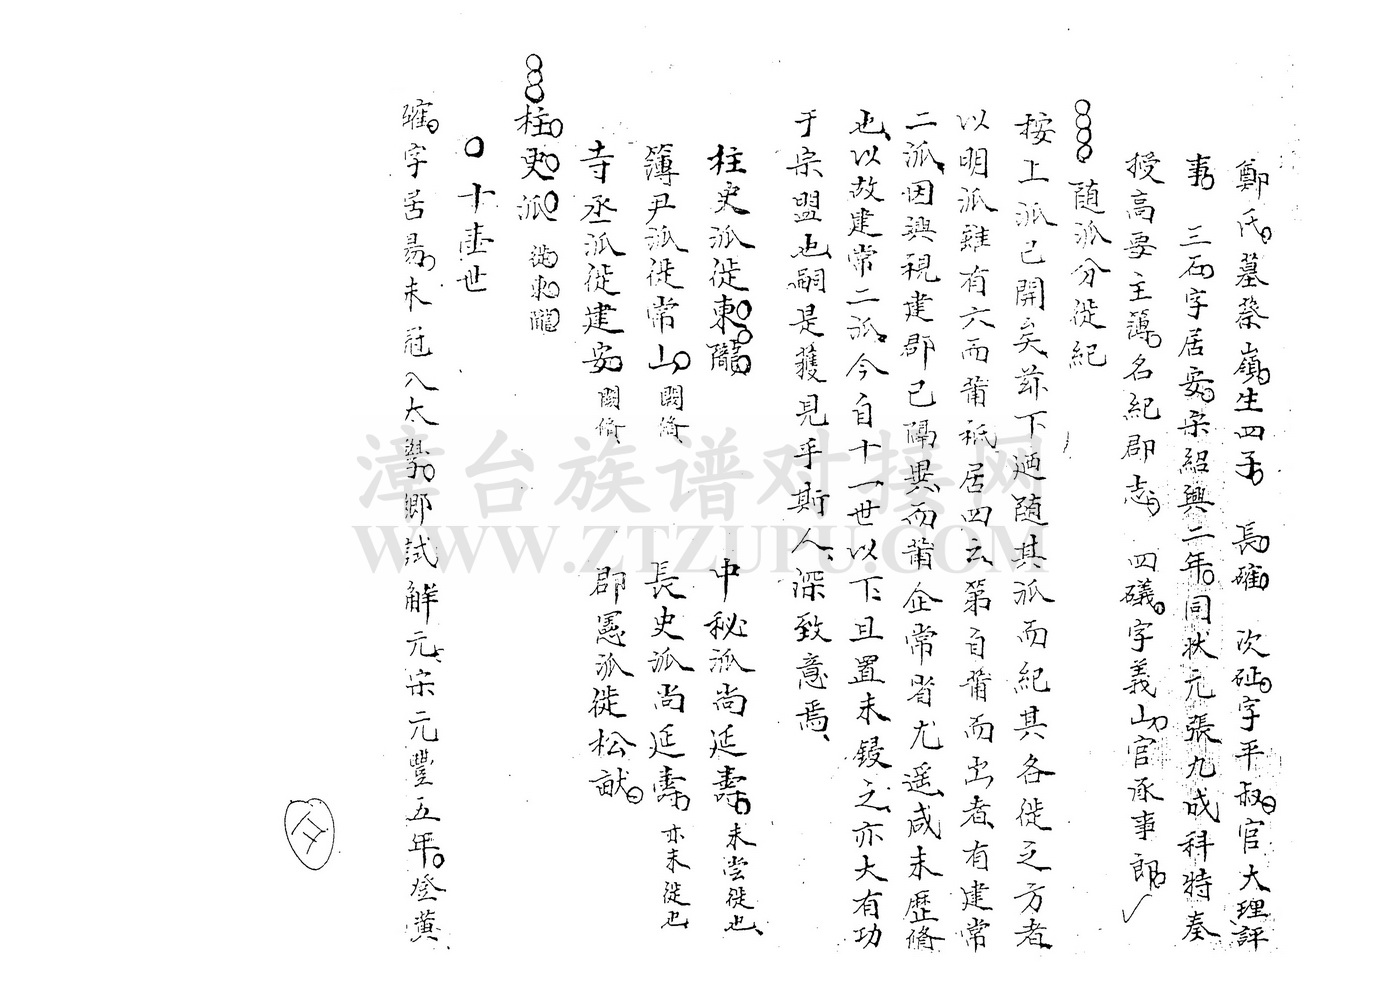 鄭氏墓蔡嶺生四子 長確 次砋字平叔官大理評
事 三石字居安宋紹興二年同状元張九成科特奏
授高要主簿名紀郡志 四礒字義山官承事郎
随派分徙紀
按上派已開矣茲下迺随其派而紀其各徙之方者
以明派雖有六而莆祇居四云第自莆而出者有建常
二派因興視建郡已隔異而莆企常省尤遥咸未歷脩
也以故建常二派今自十一世以下且置未鋟之亦大有功
于宗盟也嗣是獲見乎斯人深致意焉
柱史派徙東隴 中秘派尚延壽 未嘗徙也
簿尹派徙常山 闕脩 長史派尚延壽 亦未徙也
寺丞派徙建安 闕脩 郡憲派徙松猷
柱史派 徙東隴
十壹世
確字居易未冠入太學鄉試解元宋元豐五年登黄
漳台族谱对接网
WWW.ZTZUPU.COM